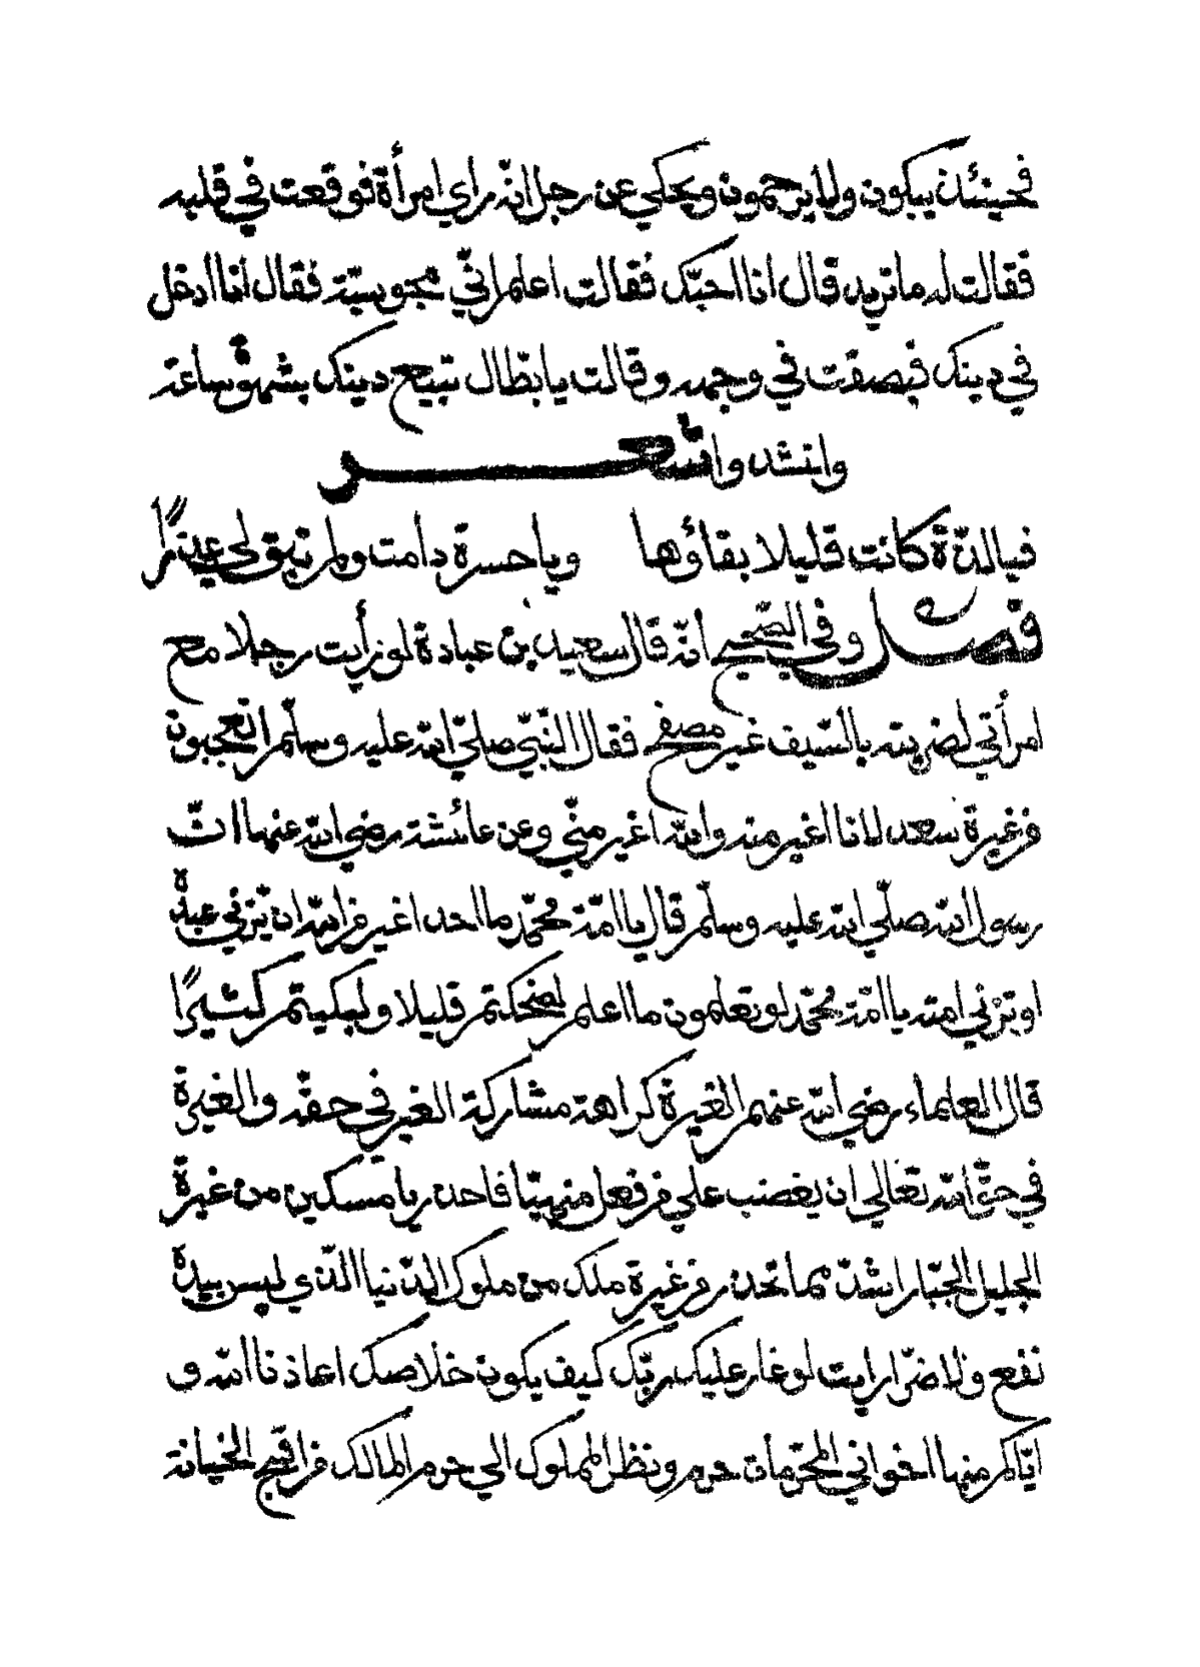 فحينئذ يبكون ولا يرحمون ويحكي عن رجل انّه راي امرأة فوقعت في قلبه
فقالت له ما تريد قال انا احبّك فقالت اعلم انّي مجوسيّة فقال انا ادخل
في دينك فبصقت في وجهه وقالت يا بطّال تبيع دينك بشهوة ساعة
وانشدوا شعر
فيالذّة كانت قليلا بقاؤها ويا حسرة دامت ولم تبق لي عذرًا
فصل وفي الصّحيح انّه قال سعيد بن عبادة لو رأيت رجلا مع
امرأتي لضربته بالسّيف غير مصفح فقال النّبيّ صلّي الله عليه وسلّم اتعجبون
من غيرة سعد لانا اغير منه والله اغير منّي وعن عائشة رضي الله عنها انّ
رسول الله صلّي الله عليه وسلّم قال يا امّة محمّد ما احد اغير من الله ان يزني عبده
او تزني امته يا امّة محمّد لو تعلمون ما اعلم لضحكتم قليلا ولبكيتم كثيرًا
قال العلماء رضي الله عنهم الغيرة كراهة مشاركة الغير في حقّه والغيرة
في حقّ الله تعالي ان يغضب علي من فعل منهيّا فاحذر يا مسكين من غيرة
الجليل الجبّار اشدّ مما تحذر من غيرة ملك من ملوك الدّنيا الّذي ليس بيده
نفع ولا ضرّ ارايت لو غار عليك ربّك كيف يكون خلاصك اعاذنا الله و
ايّاكم منها اخواني المحرّمات حرم ونظر المملوك الي حرم المالك من اقبح الخيانة